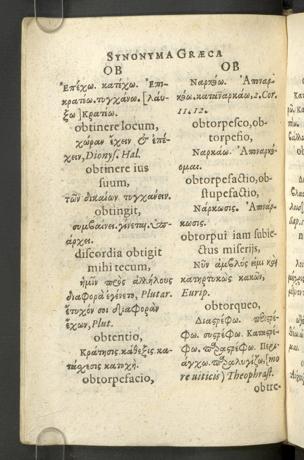 SYNONYMA GRÆCA
OB
Ἐπέχω. κατίχω. Ἐπι-
κρατέω. τυγχάνω. [λαύ-
ξω] Κρατέω.
obtinere locum,
χώραν ἔχειν & ἐπέ-
χειν, Dionys. Hal.
obtinere ius
suum,
τῶν δικαίων τυγχάνειν.
obtingit,
συμβαίνει. γίνεται. Ὑπ-
άρχει.
discordia obtigit
mihi tecum,
ἡμῖν πρὸς ἀλλήλους
διαφορὰ ἐγένετο, Plutar.
ἔτυχόν σοι διαφορὰν
ἔχων, Plut.
obtentio,
Κράτησις. κάθεξις. κα-
τάσχεσις. κατοχή.
obtorpefacio,
OB
Ναρκόω. Ἀποναρ-
κόω. καταναρκάω, 2. Cor.
11. 12.
obtorpesco, ob-
torpesio,
Ναρκάω. Ἀποναρκό-
ομαι.
obtorpefactio, ob-
stupefactio,
Νάρκωσις. Ἀπονάρ-
κωσις.
obtorpui iam subie-
ctus miserijs,
κακῶν,
Eurip.
obtorqueo,
Διαστρέφω. προστρέ-
φω. συστρέφω. Καταστρέ-
φω. παραστρέφω. Περι-
άγχω. [mo
re uiticis] Theophrast.
obtre-